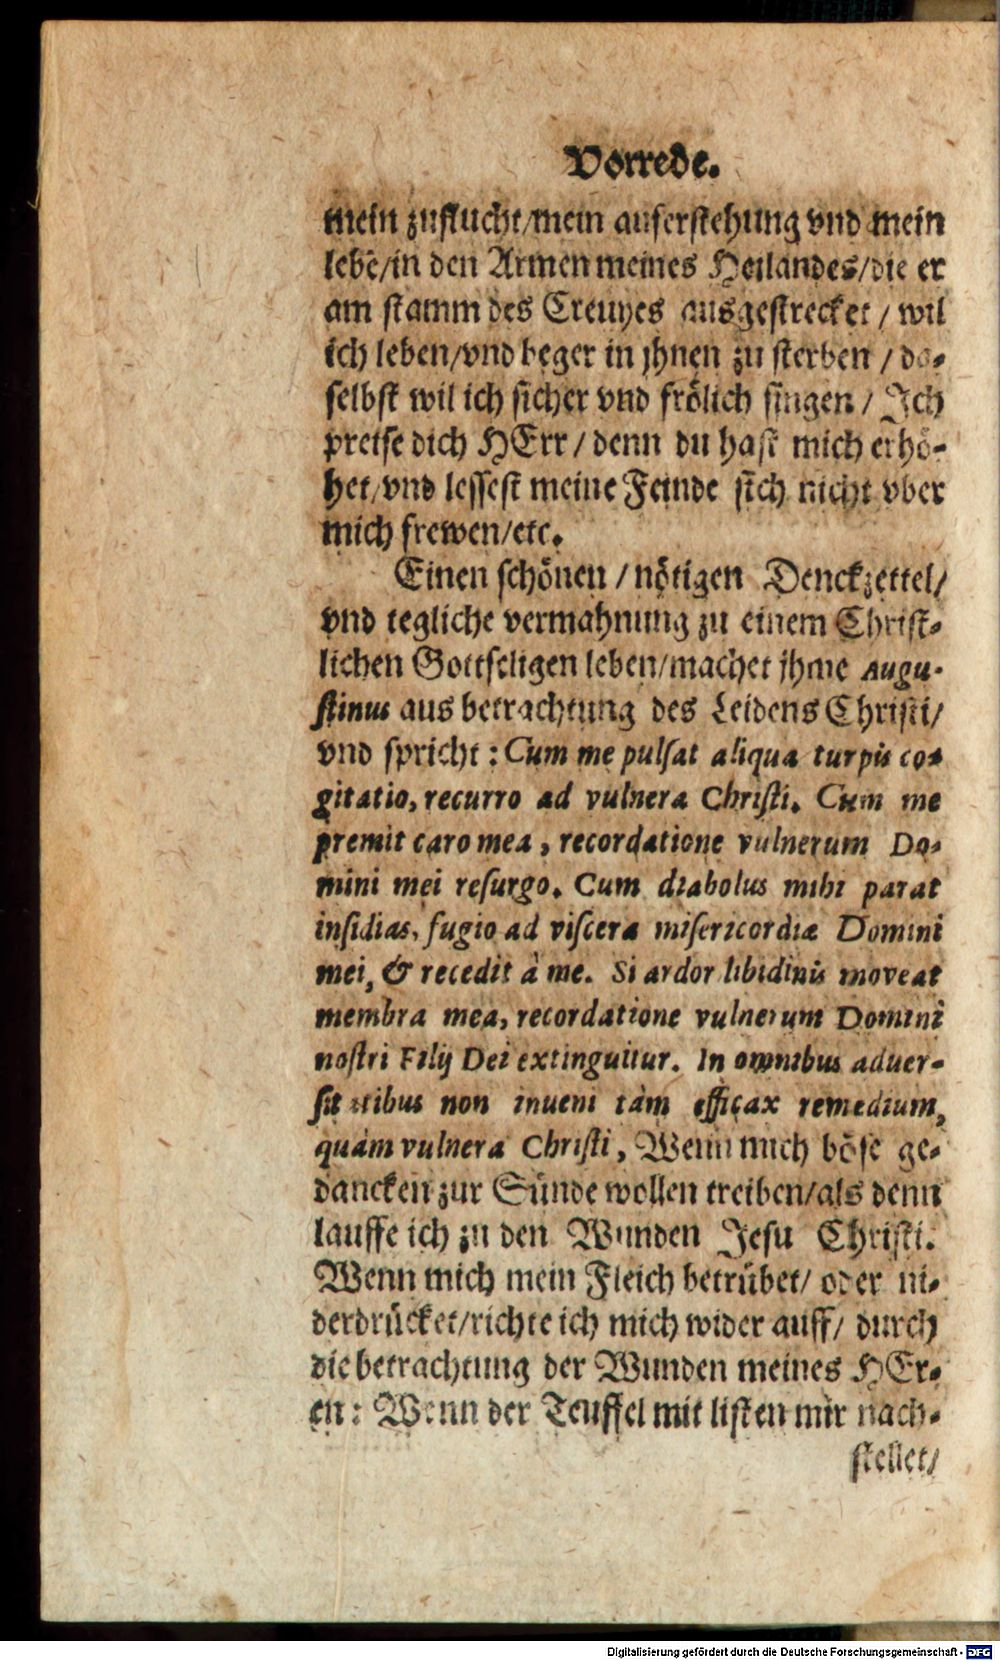 Vorrede.
mein zuflucht/mein auferstehung vnd mein
lebē/in den Armen meines Heilandes/die er
am stamm des Creutzes ausgestrecket / wil
ich leben/vnd beger in jhnen zu sterben / da-
selbst wil ich sicher vnd frölich singen / Ich
preise dich HErr / denn du hast mich erhö-
het/vnd lessest meine Feinde sich nicht vber
mich frewen/etc.
Einen schönen / nötigen Denckzettel/
vnd tegliche vermahnung zu einem Christ-
lichen Gottseligen leben/machet jhme Augu-
stinus aus betrachtung des Leidens Christi/
vnd spricht: Cum me pulsat aliqua turpis co-
gitatio, recurro ad vulnera Christi. Cum me
premit caro mea, recordatione vulnerum Do-
mini mei resurgo. Cum diabolus mihi parat
insidias, fugio ad viscera misericordiæ Domini
mei, & recedit à me. Si ardor libidinis moveat
membra mea, recordatione vulnerum Domini
nostri Filij Dei extinguitur. In omnibus aduer-
sitatibus non inueni tàm efficax remedium,
quàm vulnera Christi, Wenn mich böse ge-
dancken zur Sünde wollen treiben/als denn
lauffe ich zu den Wunden Jesu Christi.
Wenn mich mein Fleich betrübet/ oder ni-
derdrücket/richte ich mich wider auff/ durch
die betrachtung der Wunden meines HEr-
en: Wenn der Teuffel mit listen mir nach-
stellet/
Digitalisierung gefördert durch die Deutsche Forschungsgemeinschaft - DFG